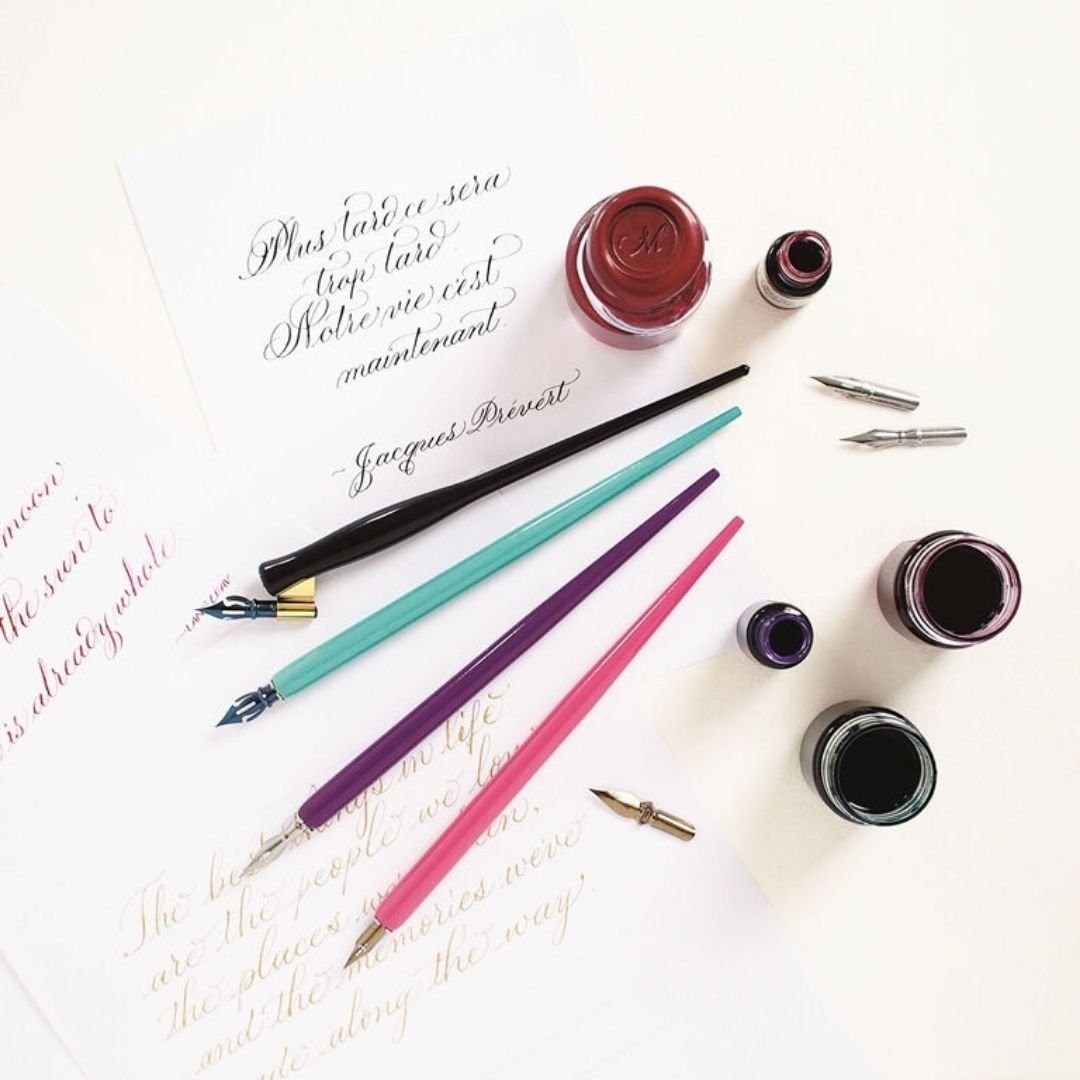 Plus tard ce sera
trop tard
Notre vie c'est
maintenant.
~Jacques Prévert
M
moon
the sun to
is already whole.
The best things in life
are the people we
the places
and the memories we've
along the way.